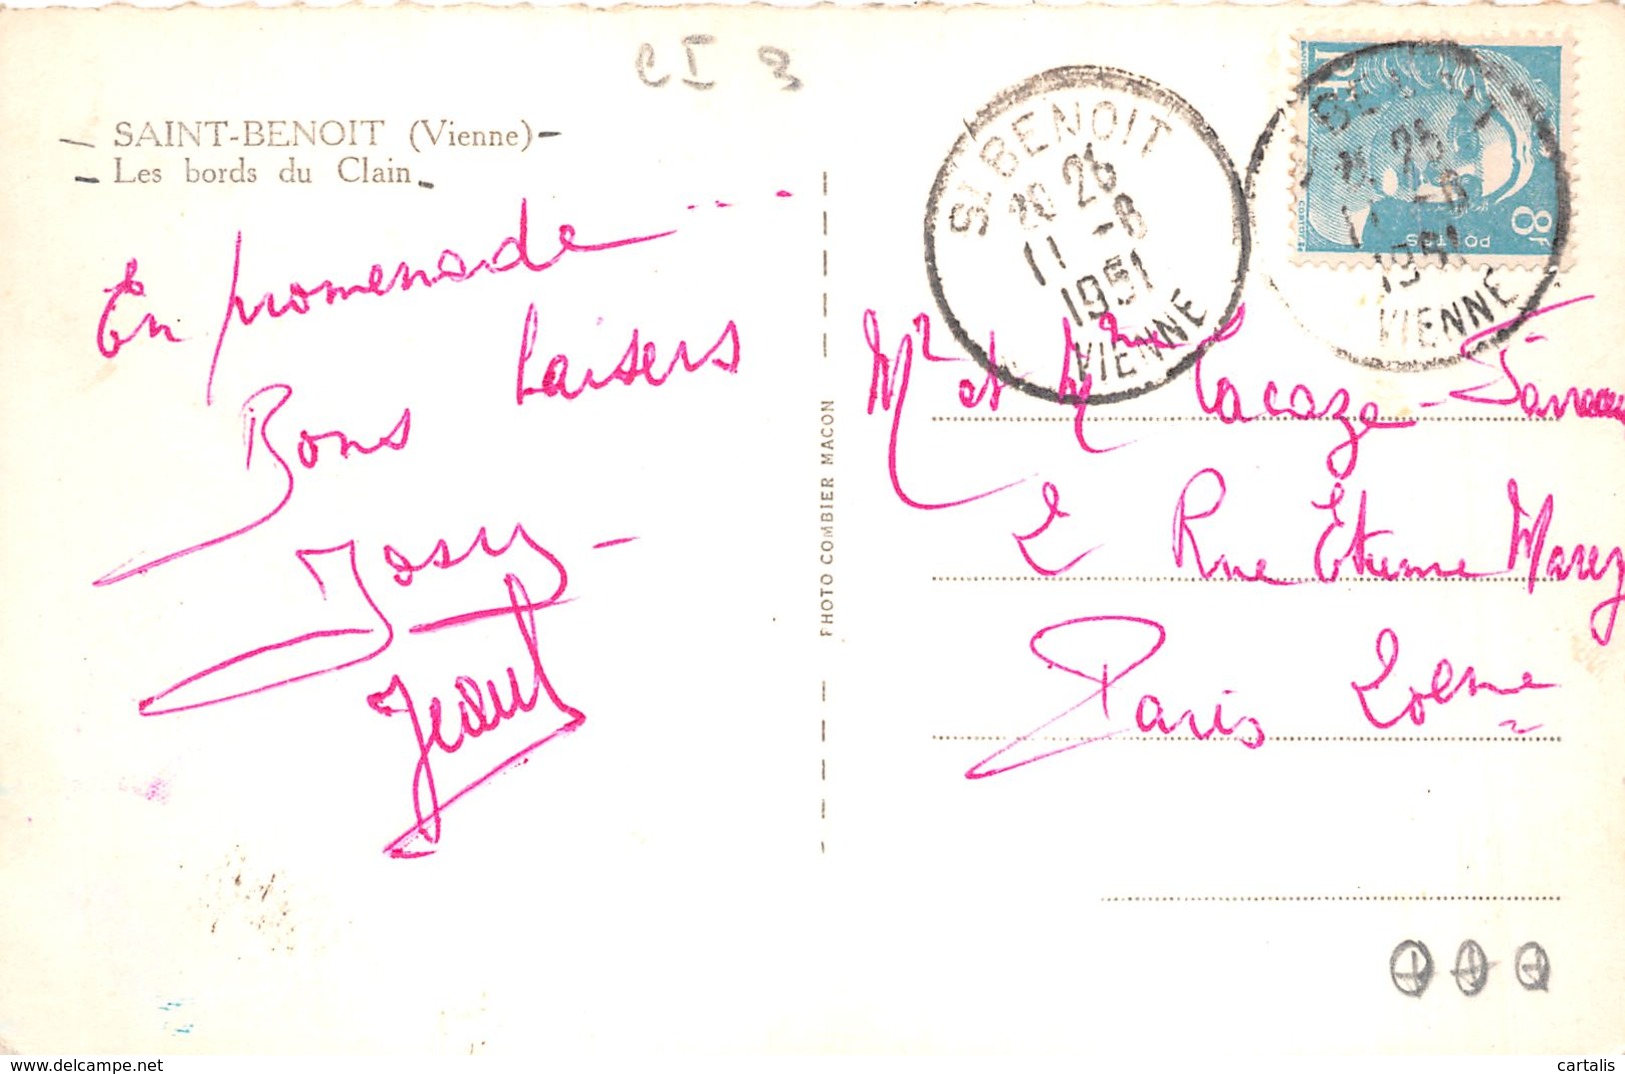 CI 3
SAINT-BENOIT (Vienne)
Les bords du Clain
En promenade ...
Bons baisers
Josy -
Jean
PHOTO COMBIER MACON
ST BENOIT
20 26
11 -8
1951
VIENNE
RF
8F
POSTES
BENOIT
26
11 -8
1951
VIENNE
Mr et Mme Lacaze-
2 Rue Etienne Marey
Paris 20ème
cartalis